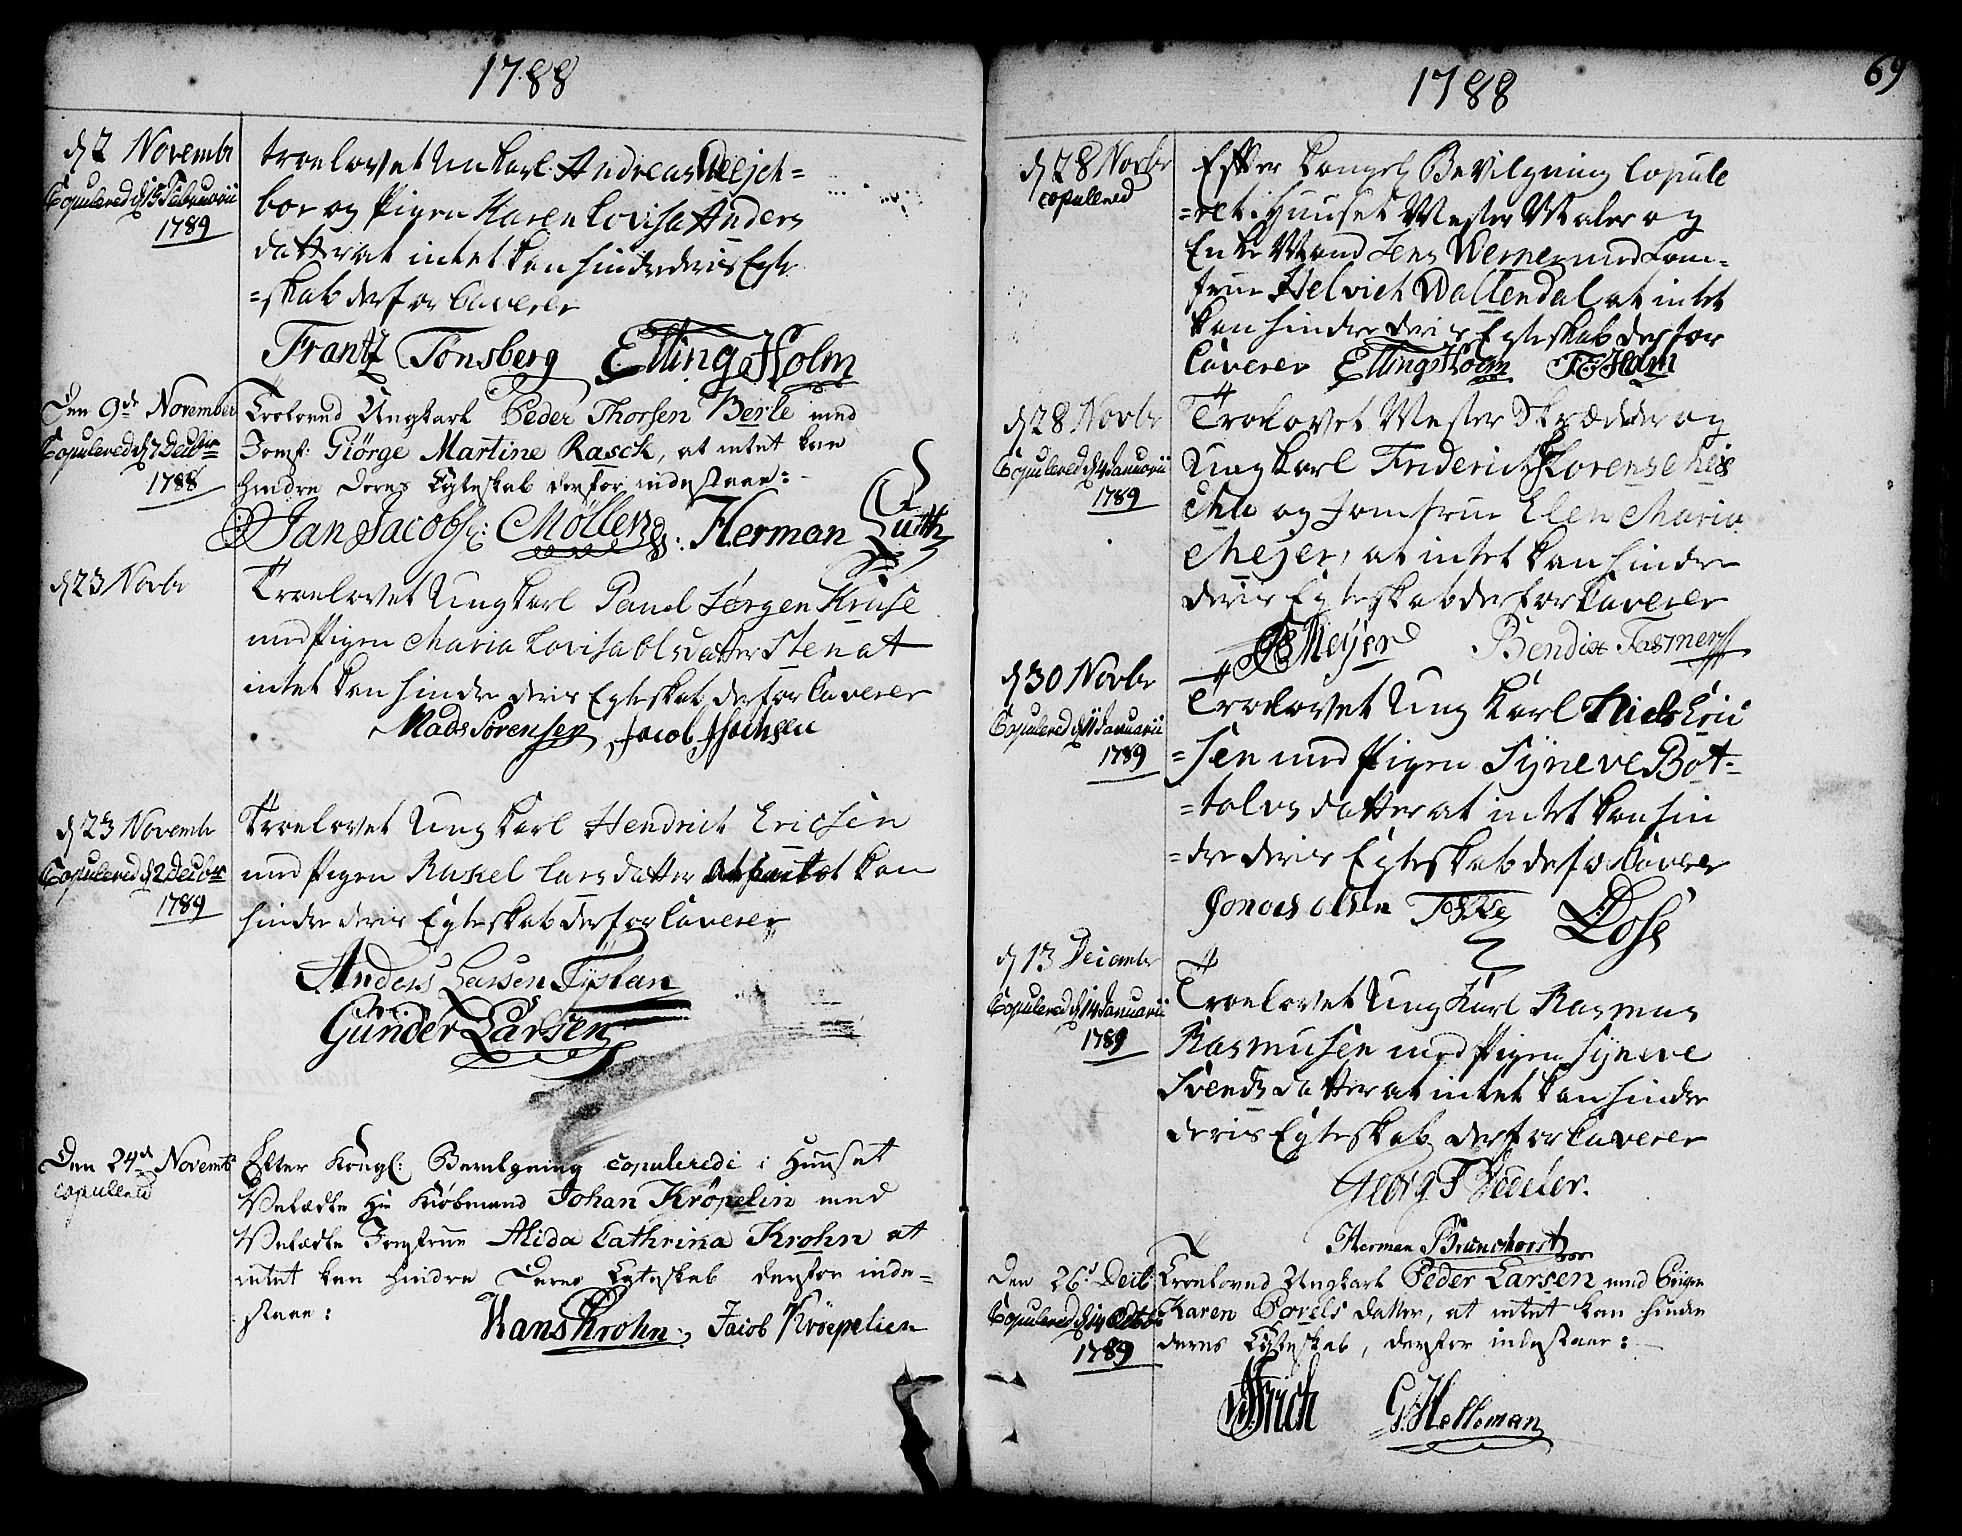 1788
d 2 Novembr
Copulered d 15 Februarii
1789
troelovet Unkarl Andreas
bor og Pigen Karen Lovisa Anders
datter at intet kan hindre deris Egte
=skab derfor Caverer
Frantz Tønsberg Elling Holm
Den 9de November
Copulered d 7 Decbr
1788
Troloved Ungkarl Peder Thorsen Berle med
Jomf: Giörge Martine Rasch, at intet kan
hindre deres Egteskab derfor indestaae:
Jan Jacobs: Møller. Herman Lüth
d 23 Novbr
Troelovet Ungkarl Paul Jørgen Kruse
med Pigen Maria Lovisa Olsdatter Sten at
intet kan hindre deris Egteskab derfor Caverer
Mads Sørensen Jacob
d 23 Novembr
Copulered d 2 Decbr
1789
Troelovet Ung karl Hendrich Ericsen
med Pigen Rakel Larsdatter at intet kan
hindre deris Egteskab derfor Caverer
Anders Larsen Tystan
Gunder Larsen
Den 24de Novembr
copulered
Efter Kongl: Bevilgning copulerede i Huuset
Velædle Hr Kiøbmand Johan Kröpelin med
Velædle Jomfrue Alida Cathrina Krohn at
intet kan hindre Deres Egteskab derfor inde=
staae:
Hans Krohn. Jacob Kröepelien
1788
69
d 28 Novbr
copulered
Efter Kongel Bevilgning Copule
=ret i Huuset Mester Maler og
Enke Mand Jens Werner med Jom=
frue Helvich Wallendal at intet
kan hindre deris Egteskab derfor
Caverer Elling Holm Holm
d 28 Novbr
Copulered d 4 Januarii
1789
Trolovet Mester Skrædder og
Ung karl Friderich Lorense
og Jomfrue Elen Maria
Meyer, at intet kan hindre
deris Egteskab derfor Caverer
Meyer Bendix Fasmer
d 30 Novbr
Copulered d 11 Januarii
1789
Trolovet Ung Karl Niels Eric
=sen med Pigen Syneve Bot=
=tolvs datter at intet kan hin
=dre deris Egteskab derfor Caverer
Jonas Olsen Dose
d 13 Decembr
Copulered d 14 Januarii
1789
Troelovet Ung Karl Rasmus
Rasmusen med Pigen Syneve
Svends datter at intet kan hindre
deris Egteskab derfor Caverer
Georg Vedeler.
Herman Brunchorst
Den 26d Decb:
Copulered d 14 Octobr
1789
Troeloved Ungkarl Peder Larsen med Pigen
Karen Povels datter, at intet kan hindre
deres Egteskab, derfor indestaae:
Frich G. Helleman